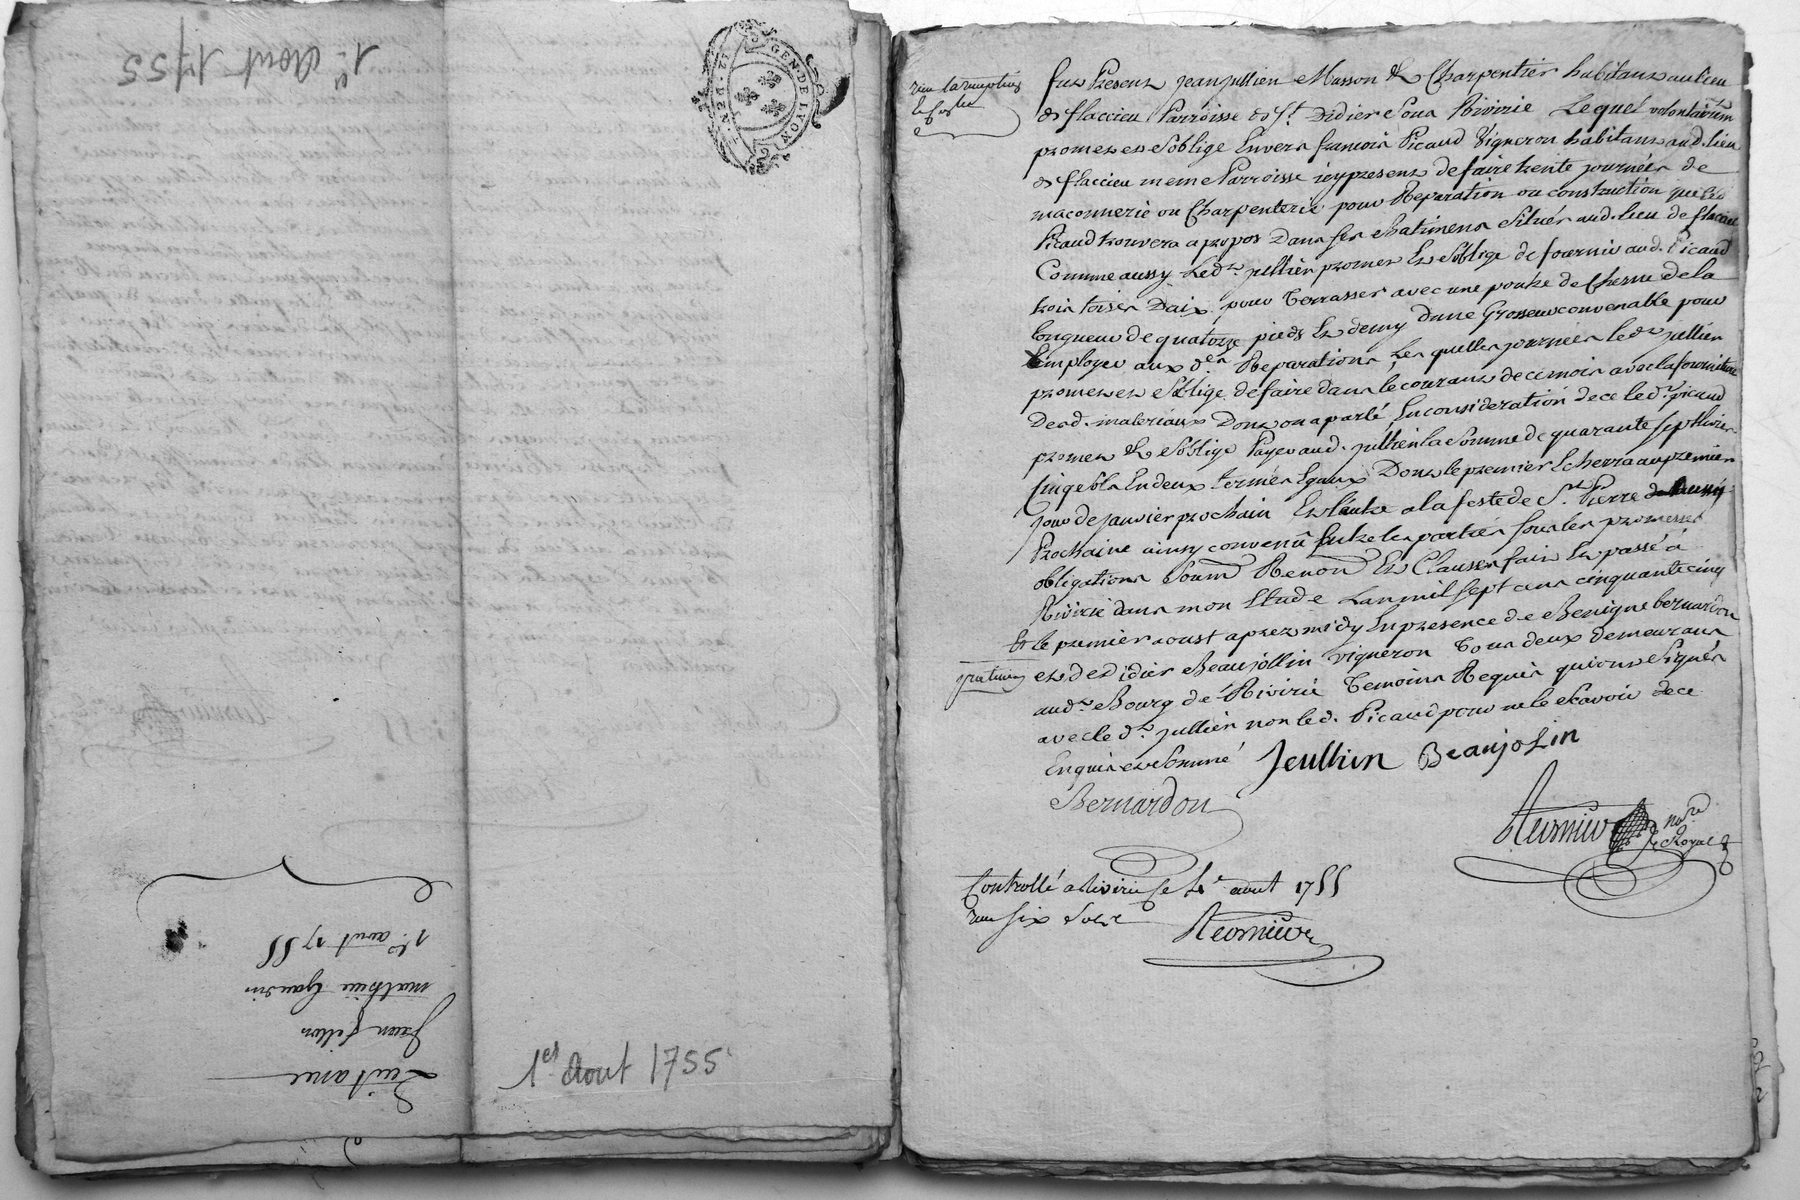 1er Aout 1755
GEN · DE · LYON
Quitance
Jean
mathieu
1er aout 1755
1er Aout 1755
Fut Present jean jullien Masson et Charpentier habitant au lieu
de flaccieu Parroisse de St Didier sous Rivirie Lequel volontairemt
promet et s'oblige Envers francois Picaud Vigneron habitant aud. lieu
de flaccieu meme Parroisse icy present de faire trente journées de
maconnerie ou Charpenterie pour Reparation ou construction que led
Picaud trouvera a propos Dans ses Batimens Situés aud. lieu de flaccieu
Comme aussy Ledt. jullien promet et s'oblige de fournir aud. Picaud
trois toises Daix pour Terrasser avec une poutre de Chesne de la
longueur de quatorze pieds et demy Dune Grosseur convenable pour
Employer aux d.es Reparations, Les quelles journées ledt jullien
promet et s'oblige de faire dans le courant de ce mois avec la fourniture
Desd. materiaux Dont on a parlé, En consideration de ce led.t picaud
promet et s'oblige Payer aud. jullien la Somme de quarante sept livres
Cinq sols En deux termes Egaux Dont le premier Echerra au premier
jour de janvier prochain Et l'autre a la feste de St. Pierre
Prochaine ainsy convenû Entre les parties sous les promesses
obligations Soumd Renond et Clauses fait et passé à
Rivirie dans mon Etude Lan mil sept cens cinquante cinq
Et le premier aoust apres midy En presence de Benigne bernardon
praticien et de Didier Beaujollin vigneron Tous deux demeurans
aud.t Bourg de Rivirie Temoins Requis qui ont Signés
avec led.t jullien non led. Picaud pour ne le sçavoir de ce
Enquis et Sommé Jeullien Beaujolin
Bernardon
notre
Royal
Controllé a Rivirie le 1.er aout 1755
reçu six sols